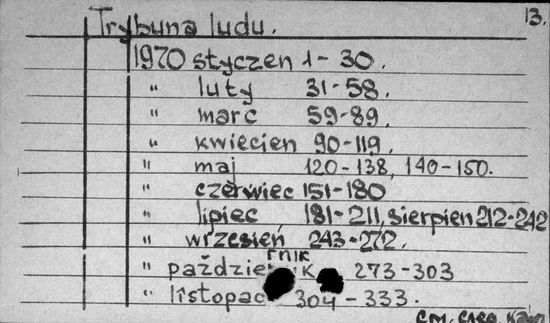 13.
Trybuna ludu.
1970 styczen 1-30.
" luty 31-58.
" marc 59-89.
" kwiecien 90-119.
" maj 120-138, 140-150.
" czerwiec 151-180
" lipiec 181-211, sierpien 212-242
" wrzesień 243-272.
" paździer rnik K 273-303
" listopad 304-333.
см. след. кат